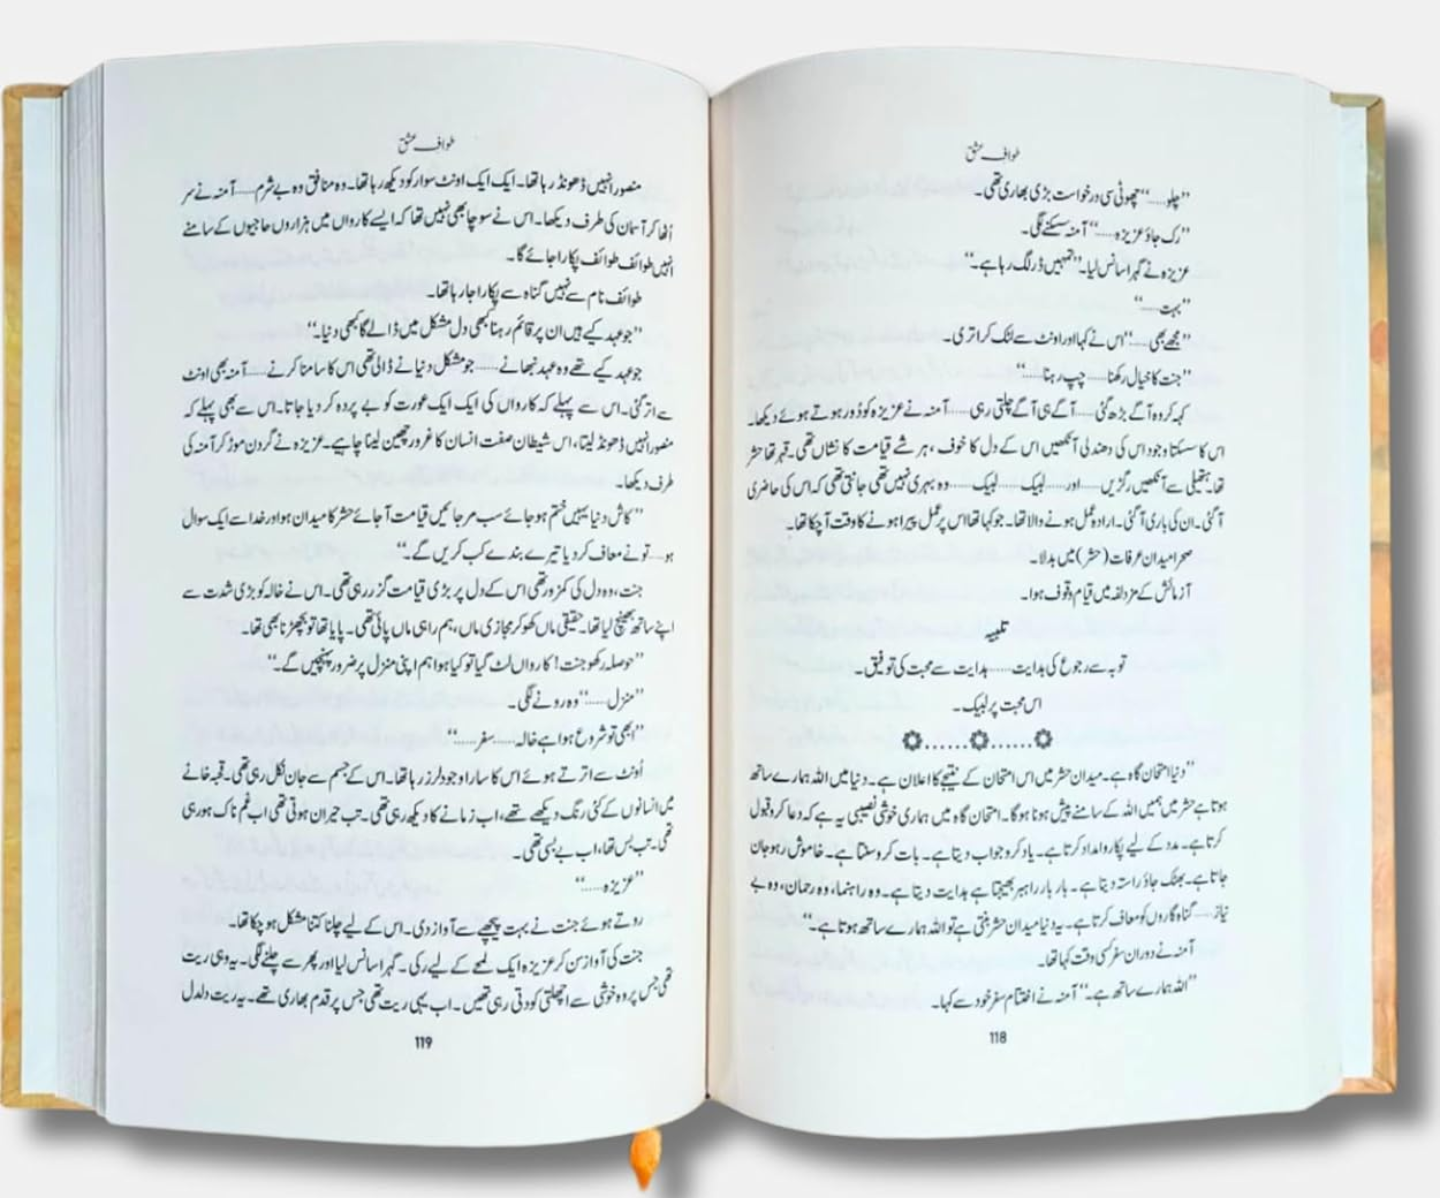 طوافِ عشق
”چلو......“ چھوٹی سی درخواست بڑی بھاری تھی۔
”رک جاؤ عزیزہ......“ آمنہ سسکنے لگی۔
عزیزہ نے گہرا سانس لیا۔ ”تمہیں ڈر لگ رہا ہے۔“
”بہت......“
”مجھے بھی......“ اس نے کہا اور اونٹ سے لٹک کر اتری۔
”جنت کا خیال رکھنا...... چپ رہنا......“
کہہ کر وہ آگے بڑھ گئی...... آگے ہی آگے چلتی رہی...... آمنہ نے عزیزہ کو دُور ہوتے ہوئے دیکھا۔
اس کا سسکتا وجود اس کی دھندلی آنکھیں اس کے دل کا خوف، ہر شے قیامت کا نشاں تھی۔ قہر تھا حشر
تھا۔ ہتھیلی سے آنکھیں رگڑیں...... اور...... لبیک...... لبیک...... وہ بہری نہیں تھی جانتی تھی کہ اس کی حاضری
آ گئی۔ ان کی باری آ گئی۔ ارادہ عمل ہونے والا تھا۔ جو کہا تھا اس پر عمل پیرا ہونے کا وقت آ چکا تھا۔
صحرا میدان عرفات (حشر) میں بدلا۔
آزمائش کے مزدلفہ میں قیام وقوف ہوا۔
تلبیہ
توبہ سے رجوع کی ہدایت...... ہدایت سے محبت کی توفیق۔
اس محبت پر لبیک۔
”دنیا امتحان گاہ ہے۔ میدان حشر میں اس امتحان کے نتیجے کا اعلان ہے۔ دنیا میں اللہ ہمارے ساتھ
ہوتا ہے حشر میں ہمیں اللہ کے سامنے پیش ہونا ہوگا۔ امتحان گاہ میں ہماری خوشی نصیبی یہ ہے کہ دعا کرو قبول
کرتا ہے۔ مدد کے لیے پکارو امداد کرتا ہے۔ یاد کرو جواب دیتا ہے۔ بات کرو سنتا ہے۔ خاموش رہو جان
جاتا ہے۔ بھٹک جاؤ راستہ دیتا ہے۔ بار بار راہبر بھیجتا ہے ہدایت دیتا ہے۔ وہ راہنما، وہ رحمان، وہ بے
نیاز...... گناہ گاروں کو معاف کرتا ہے۔ یہ دنیا میدان حشر بنتی ہے تو اللہ ہمارے ساتھ ہوتا ہے۔“
آمنہ نے دوران سفر کسی وقت کہا تھا۔
”اللہ ہمارے ساتھ ہے۔“ آمنہ نے اختتام سفر خود سے کہا۔
118
طوافِ عشق
منصور انہیں ڈھونڈ رہا تھا۔ ایک ایک اونٹ سوار کو دیکھ رہا تھا۔ وہ منافق وہ بے شرم...... آمنہ نے سر
اُٹھا کر آسمان کی طرف دیکھا۔ اس نے سوچا بھی نہیں تھا کہ ایسے کارواں میں ہزاروں حاجیوں کے سامنے
انہیں طوائف طوائف پکارا جائے گا۔
طوائف نام سے نہیں گناہ سے پکارا جا رہا تھا۔
”جو عہد کیے ہیں ان پر قائم رہنا کبھی دل مشکل میں ڈالے گا کبھی دنیا۔“
جو عہد کیے تھے وہ عہد نبھانے...... جو مشکل دنیا نے ڈالی تھی اس کا سامنا کرنے...... آمنہ بھی اونٹ
سے اتر گئی۔ اس سے پہلے کہ کارواں کی ایک ایک عورت کو بے پردہ کر دیا جاتا۔ اس سے بھی پہلے کہ
منصور انہیں ڈھونڈ لیتا، اس شیطان صفت انسان کا غرور چھین لینا چاہیے۔ عزیزہ نے گردن موڑ کر آمنہ کی
طرف دیکھا۔
”کاش دنیا یہیں ختم ہو جائے سب مر جائیں قیامت آ جائے حشر کا میدان ہو اور خدا سے ایک سوال
ہو...... تو نے معاف کر دیا تیرے بندے کب کریں گے۔“
جنت، وہ دل کی کمزور تھی اس کے دل پر بڑی قیامت گزر رہی تھی۔ اس نے خالہ کو بڑی شدت سے
اپنے ساتھ بھینچ لیا تھا۔ حقیقی ماں کھو کر مجازی ماں، ہم راہی ماں پائی تھی۔ پایا تھا تو بچھڑنا بھی تھا۔
”حوصلہ رکھو جنت! کارواں لٹ گیا تو کیا ہوا ہم اپنی منزل پر ضرور پہنچیں گے۔“
”منزل......“ وہ رونے لگی۔
”ابھی تو شروع ہوا ہے خالہ...... سفر......“
اُونٹ سے اترتے ہوئے اس کا سارا وجود لرز رہا تھا۔ اس کے جسم سے جان نکل رہی تھی۔ قحبہ خانے
میں انسانوں کے کئی رنگ دیکھے تھے، اب زمانے کا دیکھ رہی تھی۔ تب حیران ہوتی تھی اب غم ناک ہو رہی
تھی۔ تب بس تھا، اب بے بسی تھی۔
”عزیزہ......“
روتے ہوئے جنت نے بہت پیچھے سے آواز دی۔ اس کے لیے چلنا کتنا مشکل ہو چکا تھا۔
جنت کی آواز سن کر عزیزہ ایک لمحے کے لیے رکی۔ گہرا سانس لیا اور پھر سے چلنے لگی۔ یہ وہی ریت
تھی جس پر وہ خوشی سے اچھلتی کودتی رہی تھیں۔ اب یہی ریت تھی جس پر قدم بھاری تھے۔ یہ ریت دلدل
119